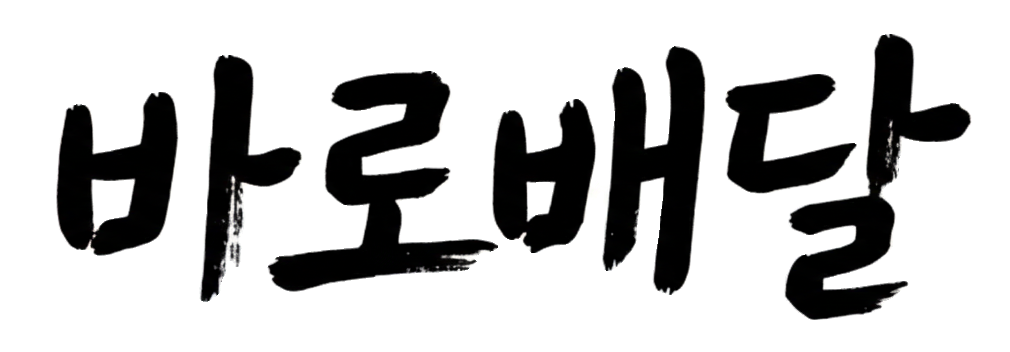 바로배달